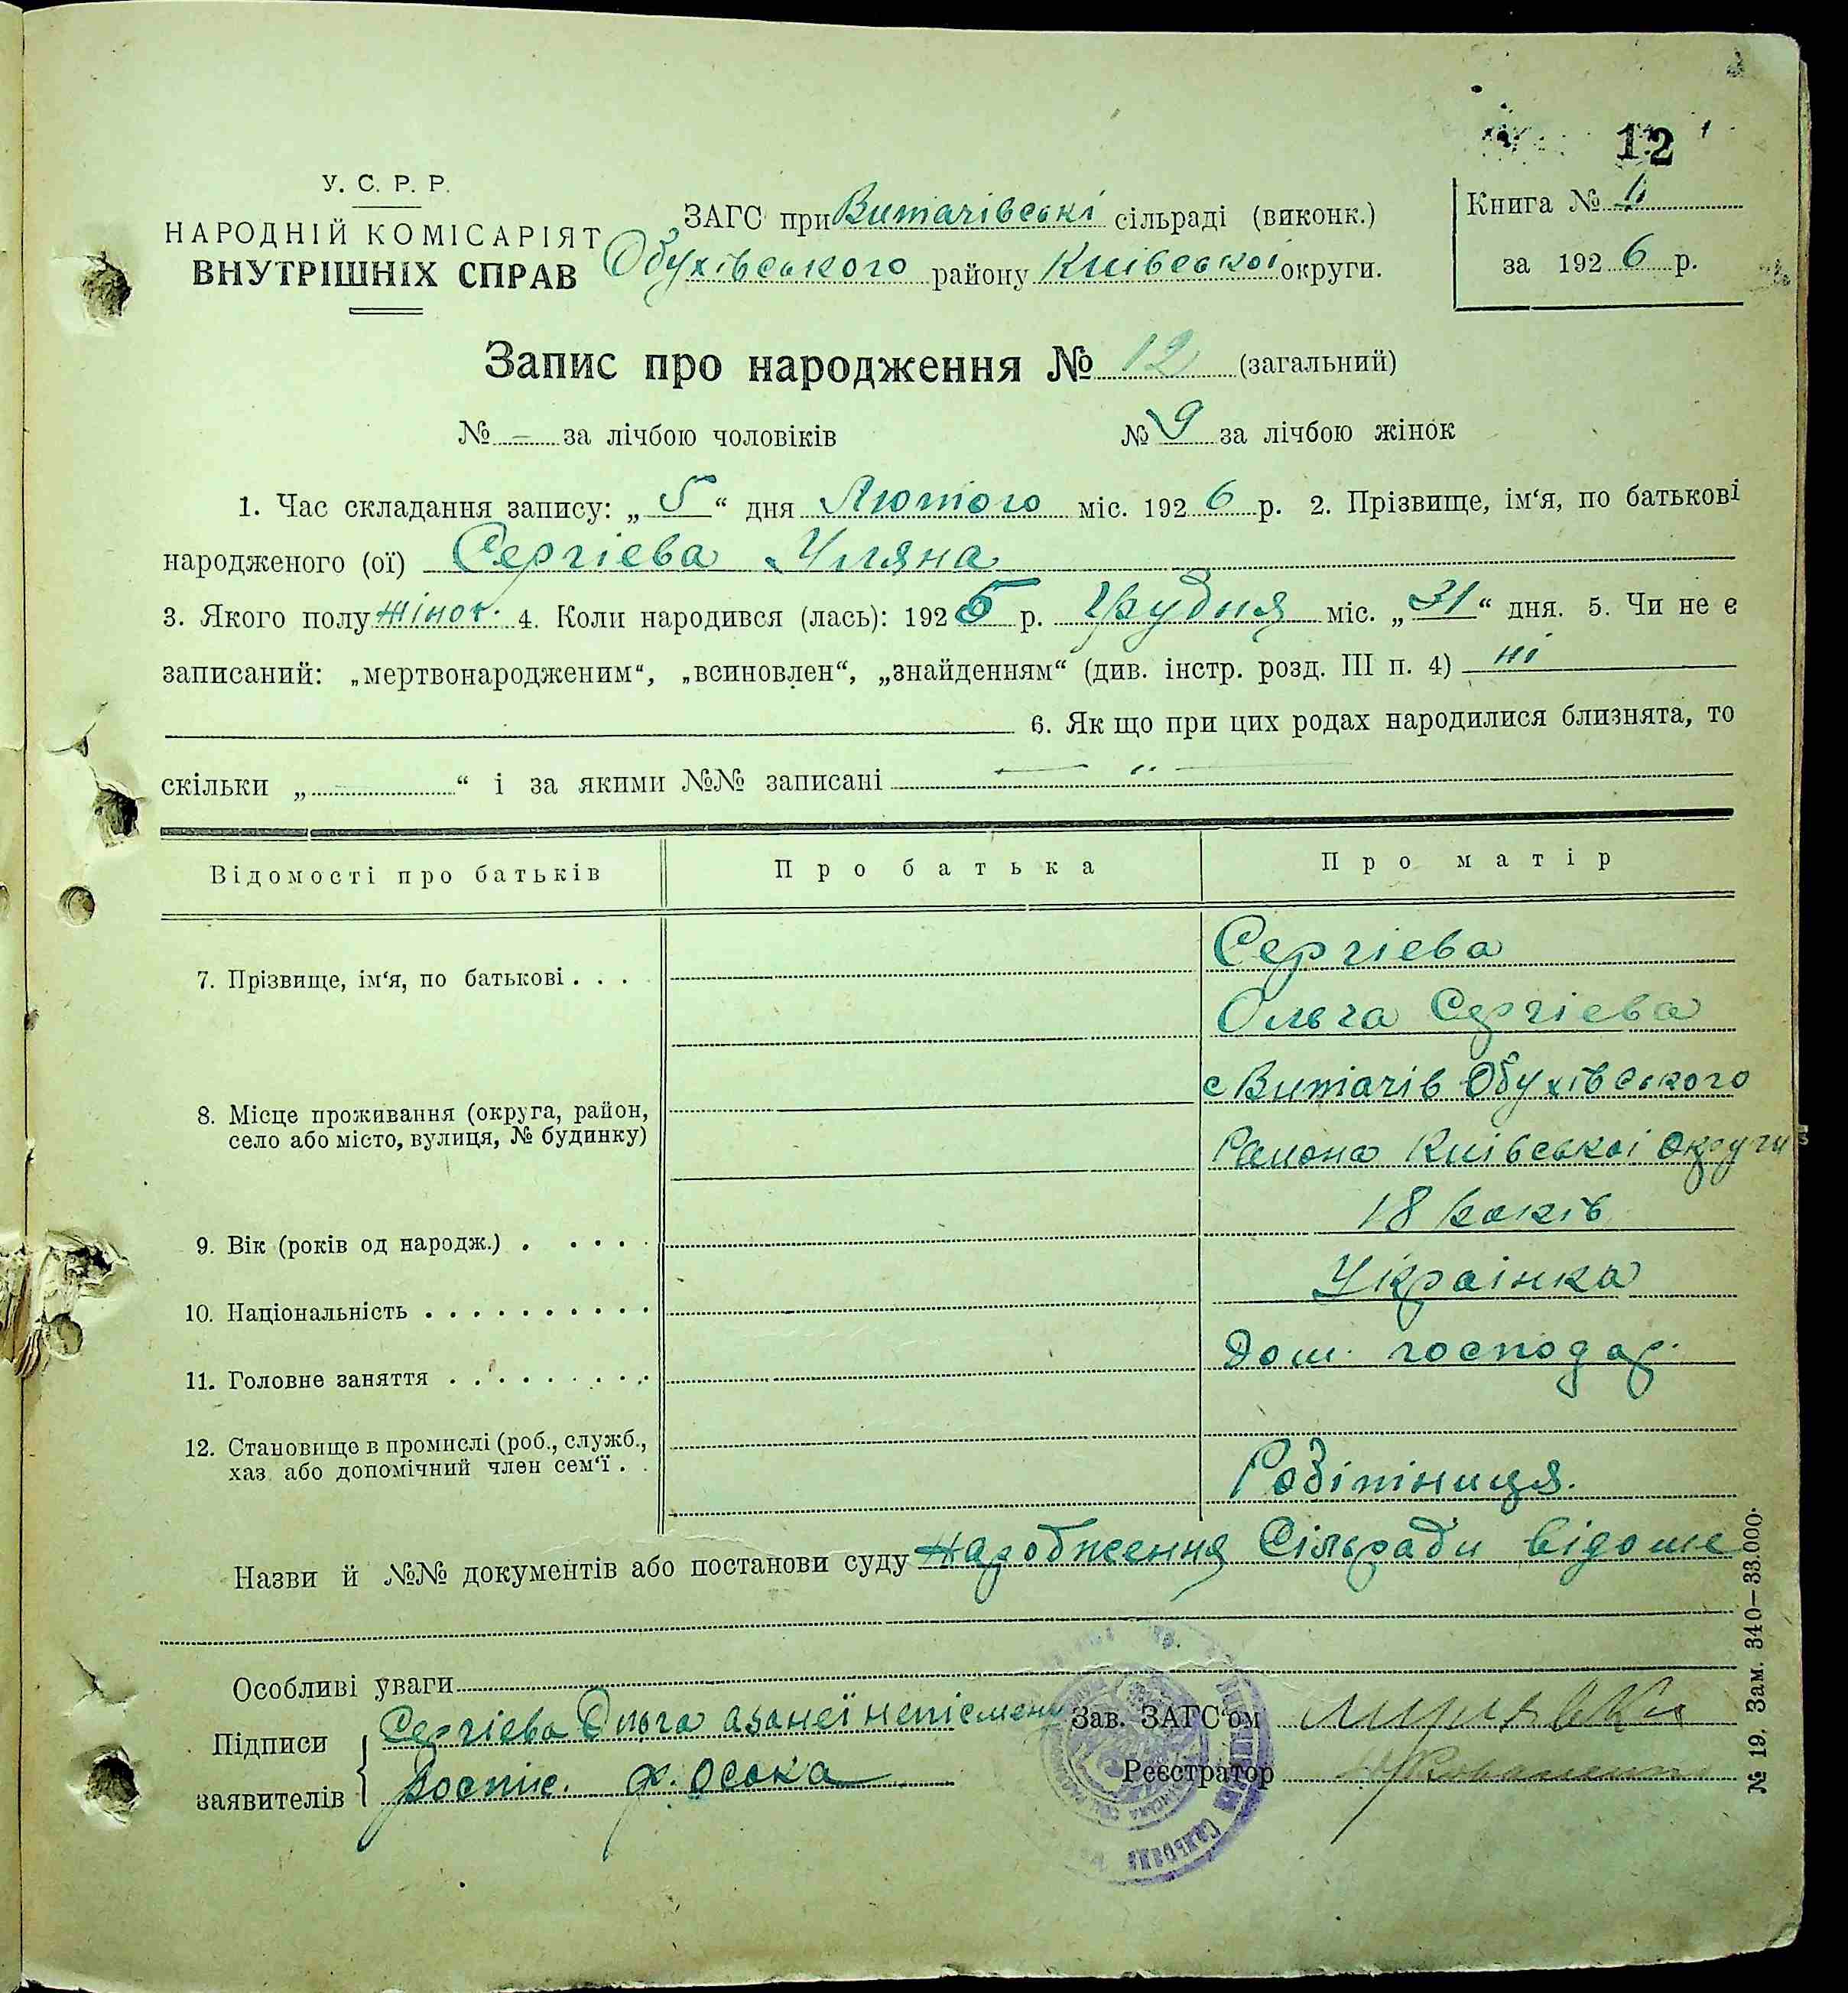 12
У. С. Р. Р.
НАРОДНІЙ КОМІСАРІЯТ
ВНУТРІШНІХ СПРАВ
ЗАГС при Витачівські сільраді (виконк.)
Обухівського району Київської округи.
Книга №
за 1926 р.
Запис про народження № 12 (загальний)
№ - за лічбою чоловіків № 9 за лічбою жінок
1. Час складання запису: „5“ дня Лютого міс. 1926 р. 2. Прізвище, ім‘я, по батькові
народженого (ої) Сергієва Уляна
3. Якого полу жіноч. 4. Коли народився (лась): 1925 р. Грудня міс. „31“ дня. 5. Чи не є
записаний: „мертвонародженим“, „всиновлен“, „знайденням“ (див. інстр. розд. III п. 4) ні
6. Як що при цих родах народилися близнята, то
скільки „ “ і за якими №№ записані — „ —
Відомості про батьків Про батька Про матір
7. Прізвище, ім‘я, по батькові . . . Сергієва
Ольга Сергієва
8. Місце проживання (округа, район,
село або місто, вулиця, № будинку)
с Витачів Обухівського
Района Київської округи
9. Вік (років од народж.) . . . . . 18 років
10. Національність . . . . . . . . . . Українка
11. Головне заняття . . . . . . . . . Дом. господар.
12. Становище в промислі (роб., служб.,
хаз. або допомічний член сем‘ї . .
Робітниця.
Назви й №№ документів або постанови суду Народження Сільради відоме
Особливі уваги
Підписи
заявителів
Сергієва Ольга а за неї непісмену
роспис. Осока
Зав. ЗАГС‘ом
Реєстратор
№ 19. Зам. 340—33.000.